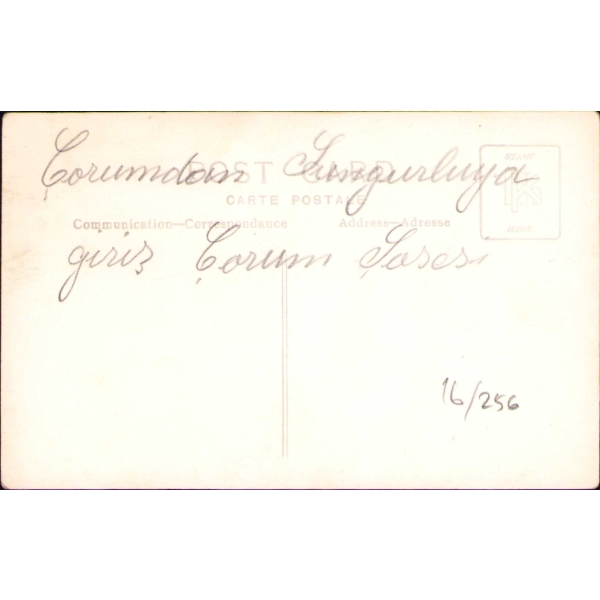 Çorumdan Sungurluya
POST CARD
CARTE POSTALE
STAMP
HERE
Communication—Correspondance
Address—Adresse
giriş Çorum Şosesi
16/256